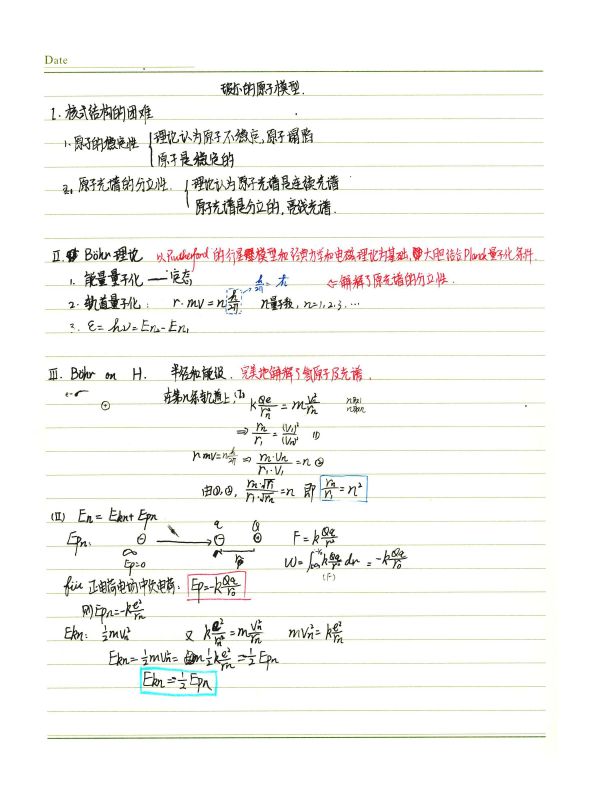 Date
玻尔的原子模型.
I. 核式结构的困难
1. 原子的稳定性 { 理论认为原子不稳定,原子塌陷
原子是稳定的
2. 原子光谱的分立性. { 理论认为原子光谱是连续光谱
原子光谱是分立的,离线光谱.
II. Böhr 理论 以Rutherford的行星模型和经典力学和电磁理论为基础, 大胆结合Planck量子化条件.
1. 能量量子化 —— 定态 h/2π = ℏ ⇐ 解释了原光谱的分立性.
2. 轨道量子化: r·mv = n h/2π n量子数, n=1,2,3,…
3. ε = hν = En₂ - En₁
III. Böhr on H. 半径和能级. 完美地解释了氢原子及光谱.
e⁻ ⊕ 在第n条轨道上, (I) k Qe/rn² = m Vn²/rn
⇒ rn/r₁ = (V₁)²/(Vn)² ①
r mv = n h/2π ⇒ rn·Vn/r₁·V₁ = n ②
由①,②, rn·√r₁/r₁·√rn = n 即 rn/r₁ = n²
(II) En = Ekn + Epn
q Q
Epn: ⊖ → ⊖ ⊕ F = k Qq/r²
∞ Ep=0 r₀ W = ∫ k Qq/r² dr = -k Qq/r₀
(F)
für 正电荷电场中负电荷: Ep = -k Qq/r₀
则 Epn = -k e²/rn
Ekn: ½mvn² 又 k e²/rn² = m Vn²/rn mVn² = k e²/rn
Ekn = ½mvn² = ½k e²/rn = -½Epn
Ekn = -½ Epn